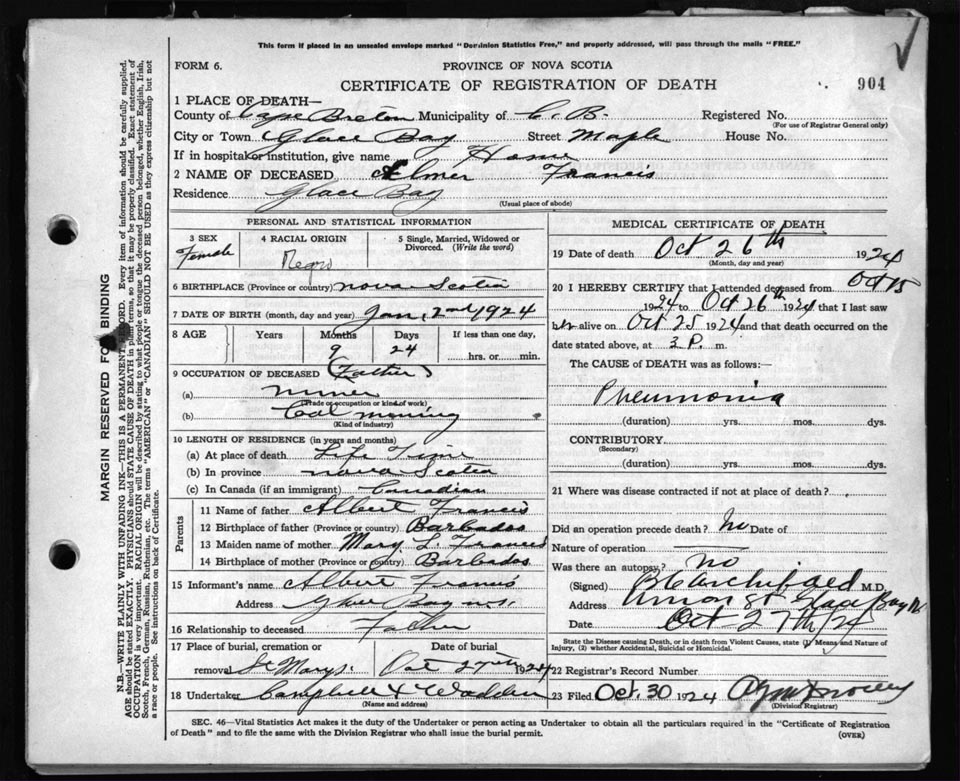 This form if placed in an unsealed envelope marked "Dominion Statistics Free," and properly addressed, will pass through the mails "FREE."
FORM 6.
PROVINCE OF NOVA SCOTIA
CERTIFICATE OF REGISTRATION OF DEATH
904
1 PLACE OF DEATH—
County of Cape Breton Municipality of C. B. Registered No.
(For use of Registrar General only)
City or Town Glace Bay Street Maple House No.
If in hospital or institution, give name Home
2 NAME OF DECEASED Elmer Francis
Residence Glace Bay
(Usual place of abode)
PERSONAL AND STATISTICAL INFORMATION
3 SEX
Female
4 RACIAL ORIGIN
Negro
5 Single, Married, Widowed or Divorced. (Write the word)
6 BIRTHPLACE (Province or country) Nova Scotia
7 DATE OF BIRTH (month, day and year) Jan, 2nd 1924
8 AGE Years Months Days If less than one day,
9 24 hrs. or min.
9 OCCUPATION OF DECEASED (Father)
(a) miner
(Trade or occupation or kind of work)
(b) Coal mining
(Kind of industry)
10 LENGTH OF RESIDENCE (in years and months)
(a) At place of death Life Time
(b) In province Nova Scotia
(c) In Canada (if an immigrant) Canadian
Parents
11 Name of father Albert Francis
12 Birthplace of father (Province or country) Barbados
13 Maiden name of mother Mary L. Francis
14 Birthplace of mother (Province or country) Barbados
15 Informant's name Albert Francis
Address Glace Bay N.S.
16 Relationship to deceased Father
17 Place of burial, cremation or removal St Marys
Date of burial Oct 27th 1924
18 Undertaker Campbell & Wadden
(Name and address)
MEDICAL CERTIFICATE OF DEATH
19 Date of death Oct 26th 1924
(Month, day and year)
20 I HEREBY CERTIFY that I attended deceased from Oct 15
1924 to Oct 26th 1924 that I last saw
her alive on Oct 25 1924 and that death occurred on
date stated above, at 3 P. m.
The CAUSE of DEATH was as follows:
Pneumonia
(duration) yrs. mos. dys.
CONTRIBUTORY
(Secondary)
(duration) yrs. mos. dys.
21 Where was disease contracted if not at place of death?
Did an operation precede death? No Date of
Nature of operation
Was there an autopsy? no
(Signed) Archibald M.D.
Address Union St. Glace Bay
Date Oct 27th/24
State the Disease causing Death, or in death from Violent Causes, state (1) Means and Nature of Injury, (2) whether Accidental, Suicidal or Homicidal.
22 Registrar's Record Number
23 Filed Oct. 30 1924
(Division Registrar)
SEC. 46—Vital Statistics Act makes it the duty of the Undertaker or person acting as Undertaker to obtain all the particulars required in the "Certificate of Registration
of Death" and to file the same with the Division Registrar who shall issue the burial permit.
(OVER)
MARGIN RESERVED FOR BINDING
N.B.—WRITE PLAINLY WITH UNFADING INK—THIS IS A PERMANENT RECORD. Every item of information should be carefully supplied.
AGE should be stated EXACTLY. PHYSICIANS should STATE CAUSE OF DEATH in plain terms, so that it may be properly classified. Exact statement of
OCCUPATION is very important. RACIAL ORIGIN will be described by stating to what people or tongue the deceased person belonged, whether English, Irish,
Scotch, French, German, Russian, Ruthenian, etc. The terms "AMERICAN" or "CANADIAN" SHOULD NOT BE USED as they express citizenship but not
a race or people. See instructions on back of Certificate.